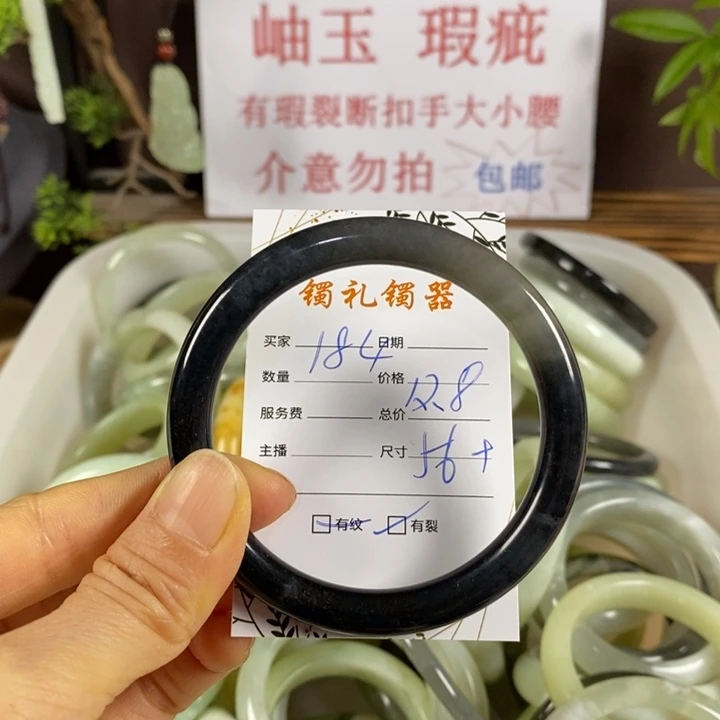 岫玉 瑕疵
有瑕裂断扣手大小腰
介意勿拍 包邮
镯礼镯器
买家 184 日期
数量 价格 12.8
服务费 总价
主播 尺寸 56+
有纹 有裂